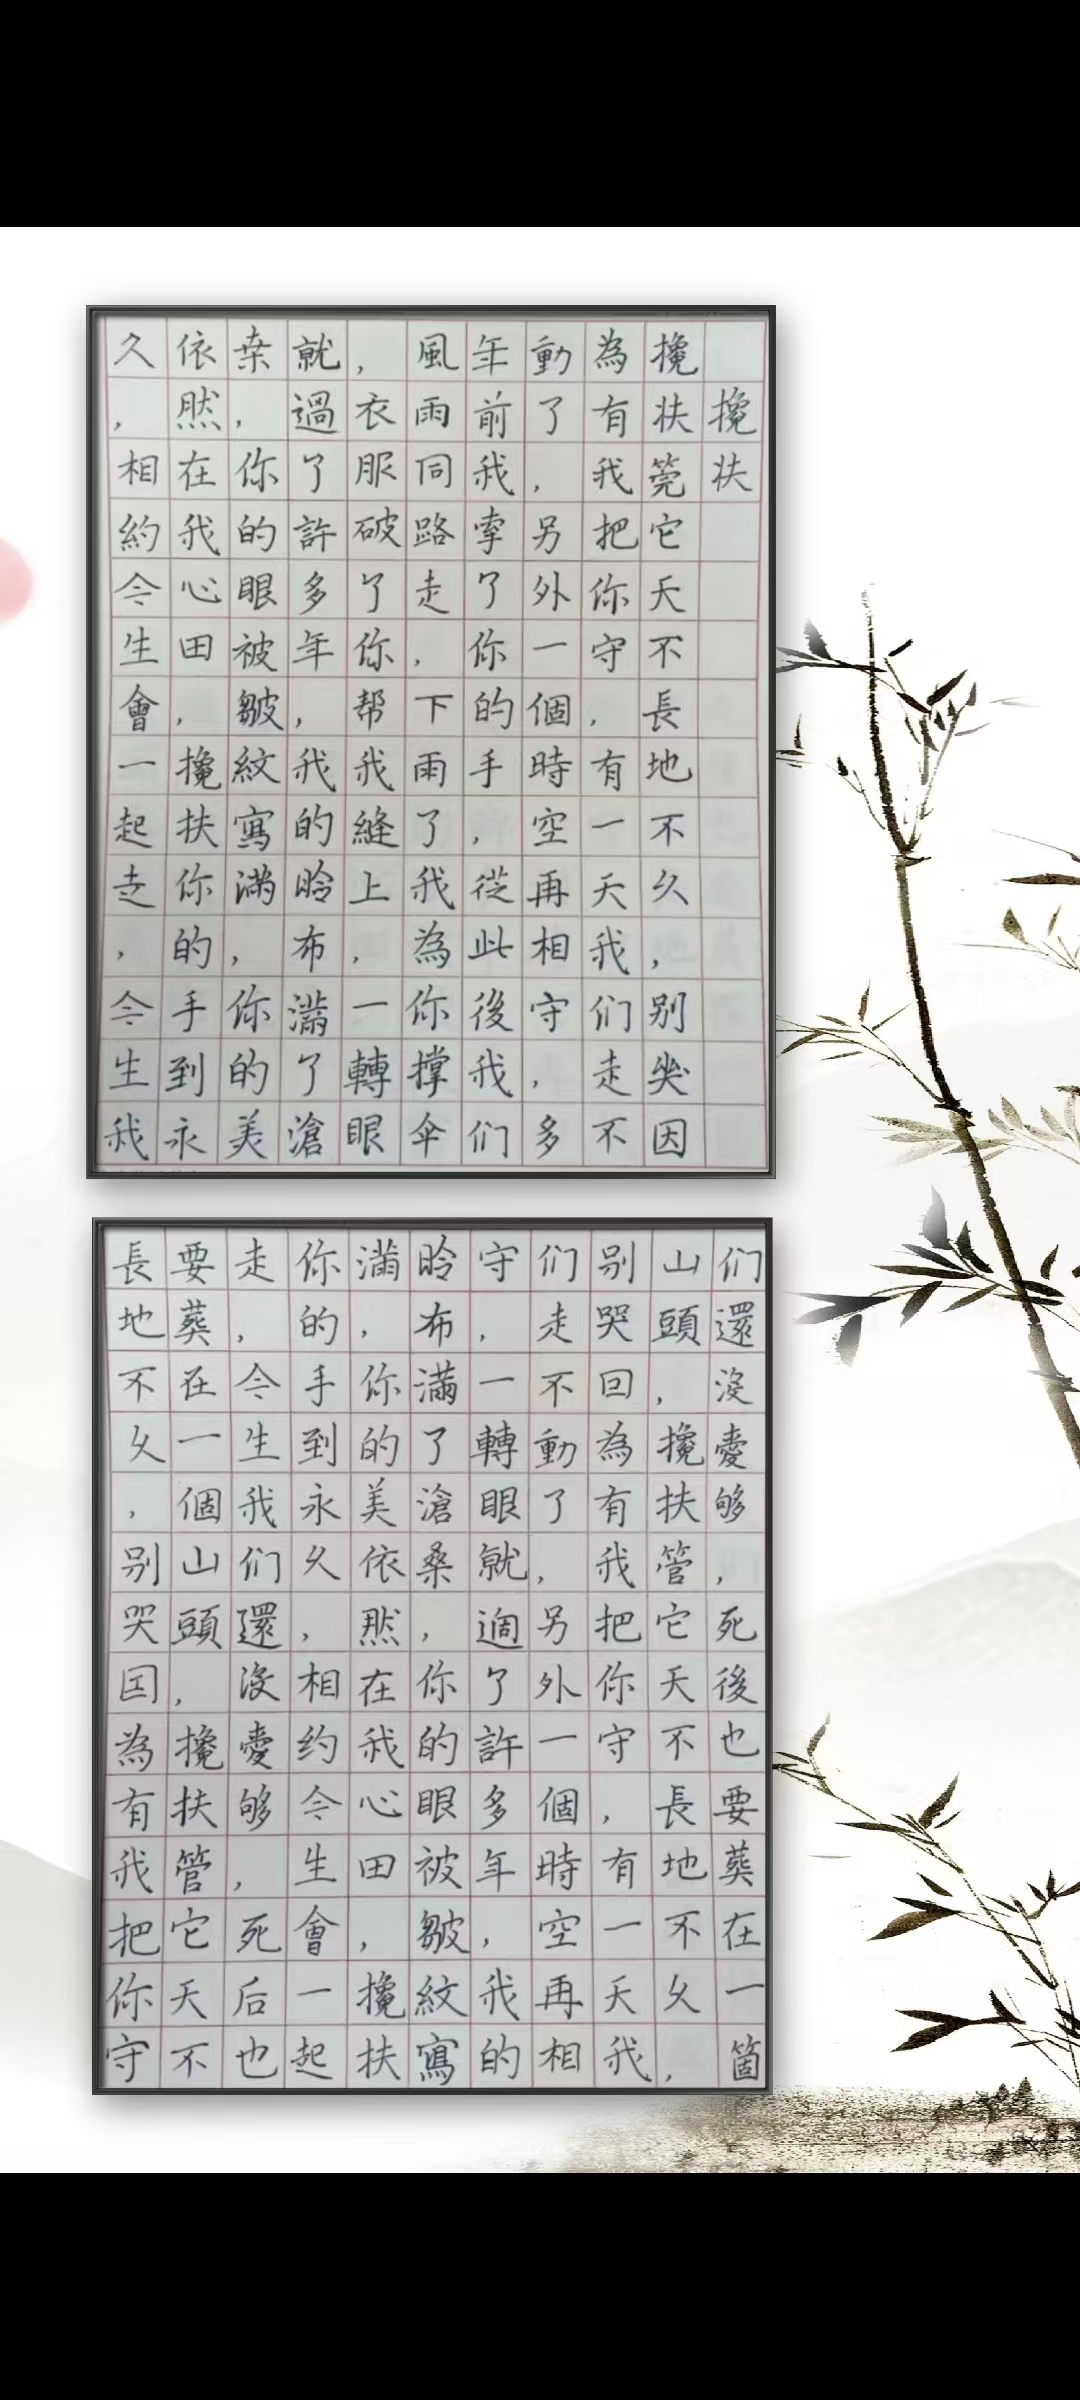 攙扶
攙扶管它天不長地不久，别哭因
為有我把你守，有一天我们走不
動了，另外一個時空再相守，多
年前我牽了你的手，從此後我们
風雨同路走，下雨了我為你撑伞
，衣服破了你帮我縫上，一轉眼
就過了許多年，我的脸布滿了滄
桑，你的眼被皺紋寫滿，你的美
依然在我心田，攙扶你的手到永
久，相約今生會一起走，今生我
们還沒愛够，死後也要葬在一箇
山頭，攙扶管它天不長地不久，
别哭因為有我把你守，有一天我
们走不動了，另外一個時空再相
守，一轉眼就過了許多年，我的
脸布滿了滄桑，你的眼被皺紋寫
滿，你的美依然在我心田，攙扶
你的手到永久，相约今生會一起
走，今生我们還沒愛够，死后也
要葬在一個山頭，攙扶管它天不
長地不久，别哭因為有我把你守